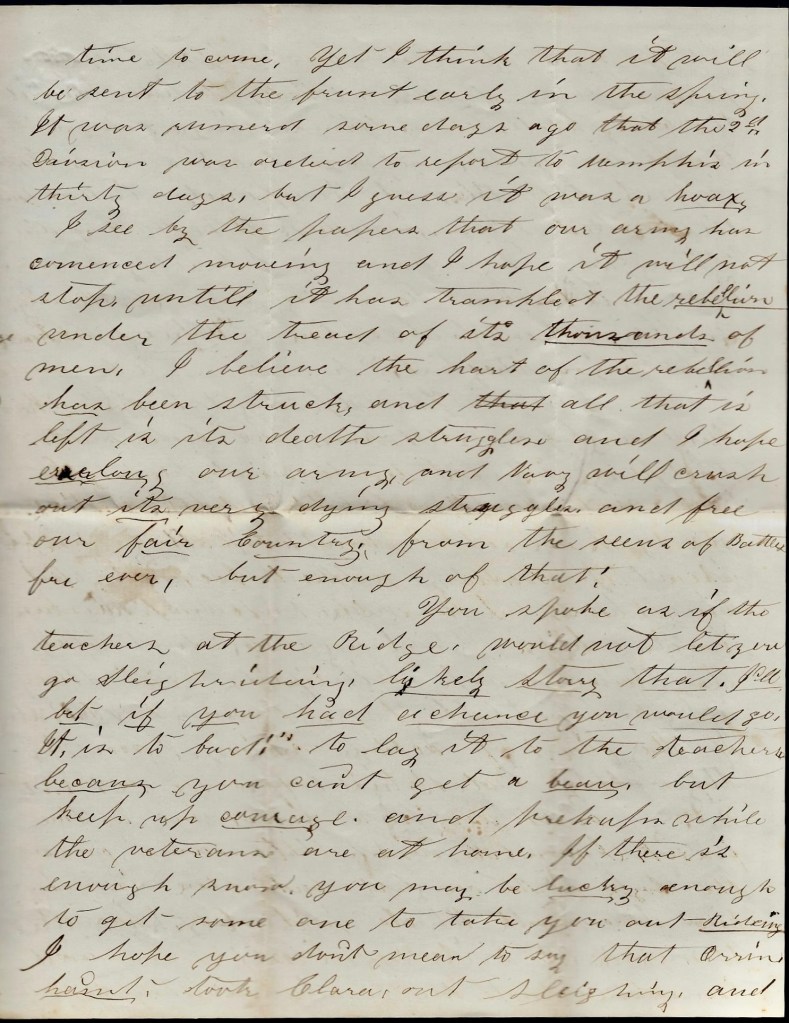 time to come, Yet I think that it will
be sent to the frunt early in the spring.
It was rumerd some days ago that the 2d
Division was orderd to report to Memphis in
thirty days, but I guess it was a hoax,
I see by the papers that our army has
comenced moveing and I hope it will not
stop, untill it has trampled the rebellion
under the tread of its thousands of
men. I believe the hart of the rebellion
has been struck, and that all that is
left is its death struggles and I hope
our army, and Navy will crush
out its very dying struggles, and free
our fair Country, from the seens of Battles
fre ever, but enough of that!
You spoke as if the
teachers at the Ridge, would not let you
go Sleighrideing, likely story that. I'll
bet if you had a chance you would go.
It, is to bad!" to lay it to the teachers
becaus you can't get a beau, but
keep up courage. and prehaps while
the veterans are at home, If there is
enough snow, you may be lucky enough
to get some one to take you out Rideing
I hope you don't mean to say that Orrin,
hasnt, took Clara, out sleighing, and